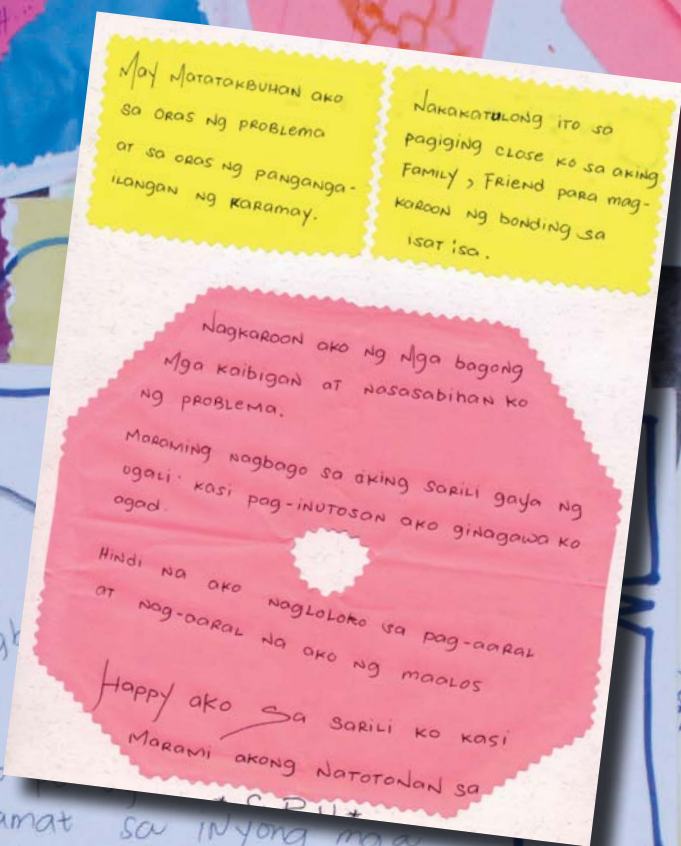 May MATATAKBUHAN AKO
sa ORAS Ng PROBLEMA
at sa ORAS Ng PANGANGA-
ILANGAN Ng KARAMAY.
NakakaTulong iTo sa
pagiging close ko sa aking
Family, Friend para mag-
karoon ng bonding sa
isaT isa.
Nagkaroon ako Ng Mga bagong
Mga kaibigan at Nasasabihan ko
Ng PROBLEMA.
MARAMING Nagbago sa aking SARILI gaya Ng
ogali. kasi pag-iNUTOSAN ako giNagawa ko
agad.
HiNdi Na ako NagLoLoko sa pag-aaRAL
at Nag-aaRAL Na ako Ng maaLos
Happy ako Sa SARILI ko kasi
MARAMI akong NATOTONAN sa
amat sa iNyong mga